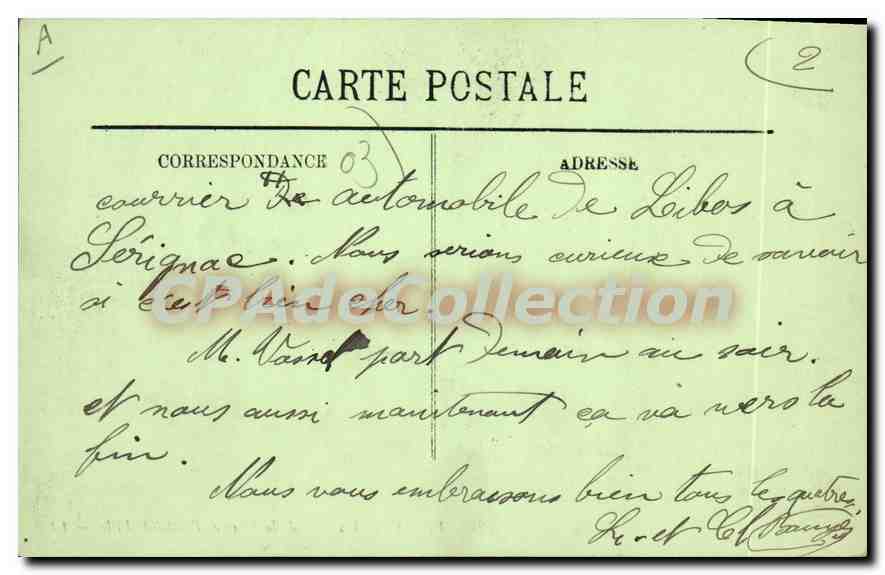 A
2
CARTE POSTALE
CORRESPONDANCE
03
ADRESSE
courrier de automobile de Libos à
Sérignac. Nous serions curieux de savoir
si c'est bien cher.
CPAdeCollection
M. Vassel part demain au soir.
et nous aussi maintenant ça va vers la
fin.
Nous vous embrassons bien tous les quatres
et